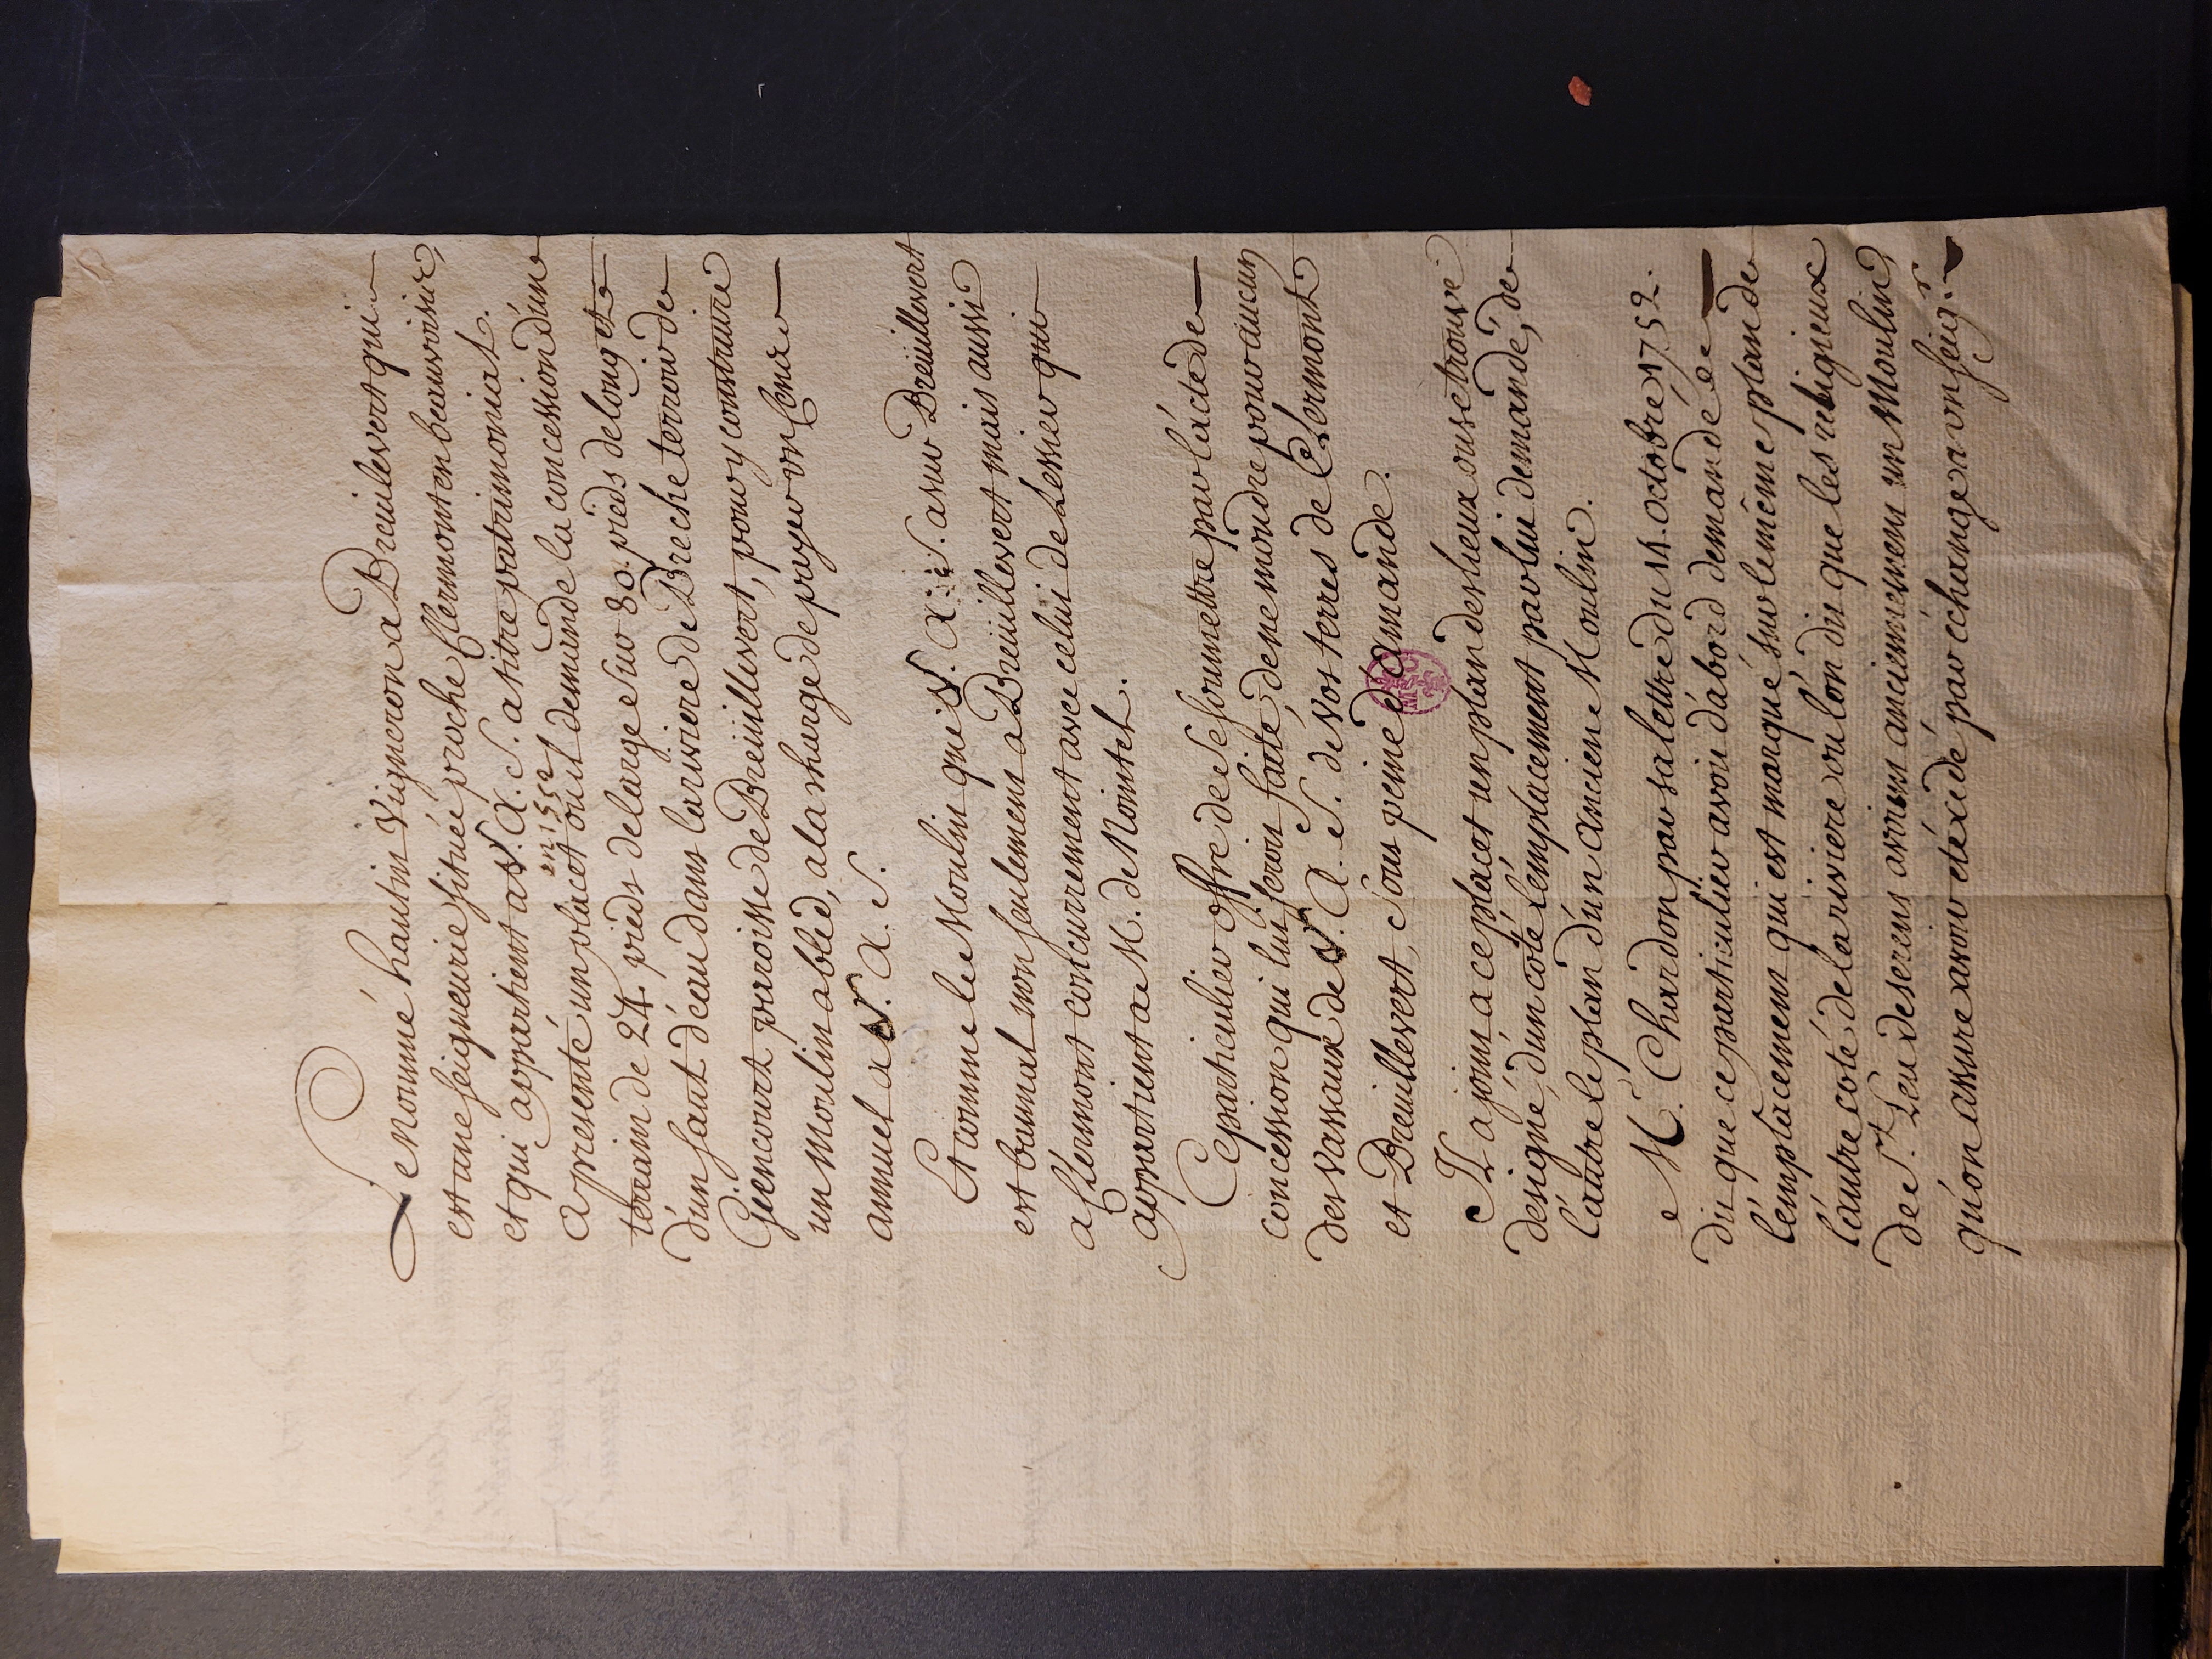 Le Nommé hautin Vigneron a Breuilevert qui
est une seigneurie située proche Clermont en beauvoisir,
et qui appartient a V. A. S. a titre patrimonial.
en 1752
a presenté un placet ou il demande la concession d'une
terrain de 24. pieds de large sur 80. pieds de long et
d'un saut d'eau dans la riviere de Breche terroir de
Giencourt paroisse de Breüillevert, pour y construire
un Moulin a bled, a la charge de payer un Cens
annuel a V. A. S.
Et comme le Moulin que V. A. S. a sur Breüillevert
est bannal non seulement a Breüillevert mais aussi
a Clermont concurremment avec celui de Lessier qui
appartient a M. de Nointel.
Ce particulier offre de se soumettre par l'acte de
concession qui lui seroit faite, de ne moudre pour aucun
des vassaux de V. A. S. de vos terres de Clermont
et Breuillevert, sous peine d'amande.
Il a joint a ce placet un plan des lieux ou se trouve
designé, d'un coté l'emplacement par lui demandé, de
l'autre le plan d'un ancien Moulin.
M. Chardon par sa lettre du 14. octobre 1752.
dit que ce particulier avoit d'abord demandé
l'emplacement qui est marqué sur le même plan de
l'autre coté de la riviere ou l'on dit que les religieux
de St. Leu deserens avoient anciennement un Moulin
qu'on assure avoir eté cedé par echange a un seigr.